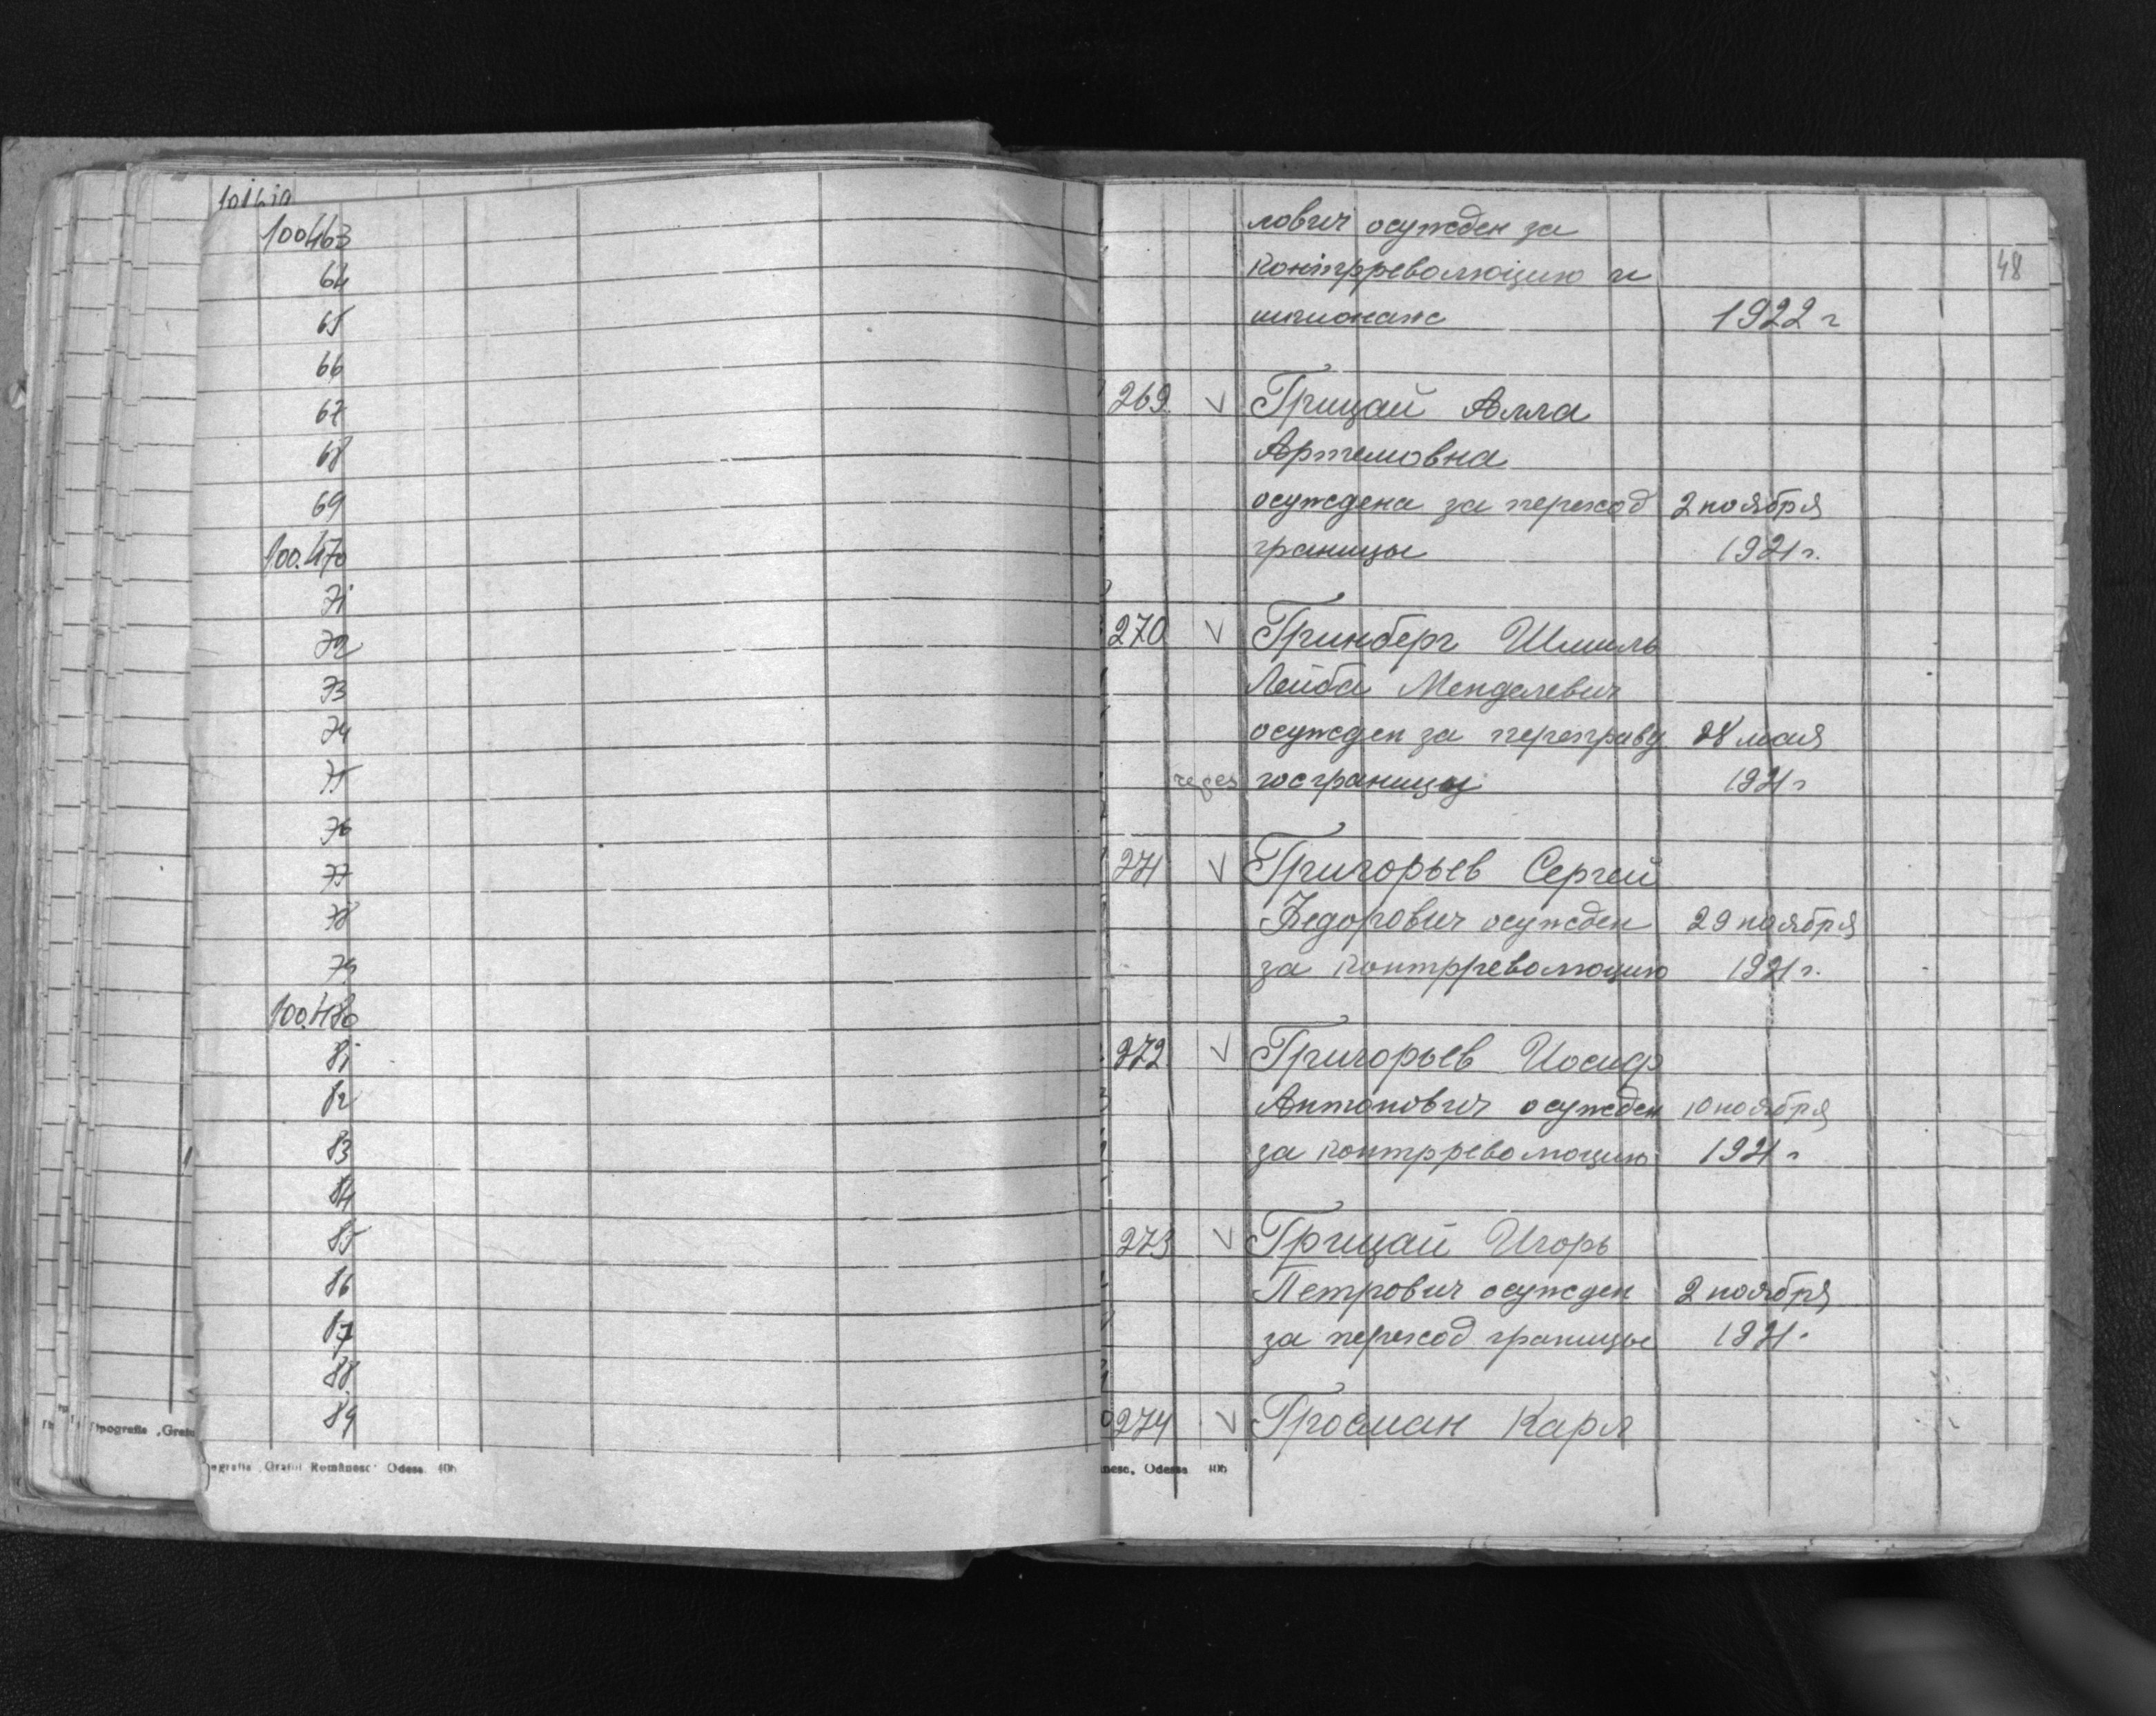 100463
64
65
66
67
68
69
100.470
71
72
73
74
75
76
77
78
79
100.480
81
82
83
84
85
86
87
88
89
Graiul Românesc Odesa 406
48
лович осужден за
контрреволюцию и
шпионаж 1922 г
269 V Грицай Алла
Артемовна
осуждена за переход 2 ноября
границы 1921 г.
270 V Гринберг Шмиль
Лейба Менделевич
осужден за переправу 28 мая
через госграницу 1921 г
271 V Григорьев Сергей
Федорович осужден 29 ноября
за контрреволюцию 1921 г.
272 V Григорьев Иосиф
Антонович осужден 10 ноября
за контрреволюцию 1921 г
273 V Грицай Игорь
Петрович осужден 2 ноября
за переход границы 1921.
274 V Гросман Карл
nesc, Odessa 406